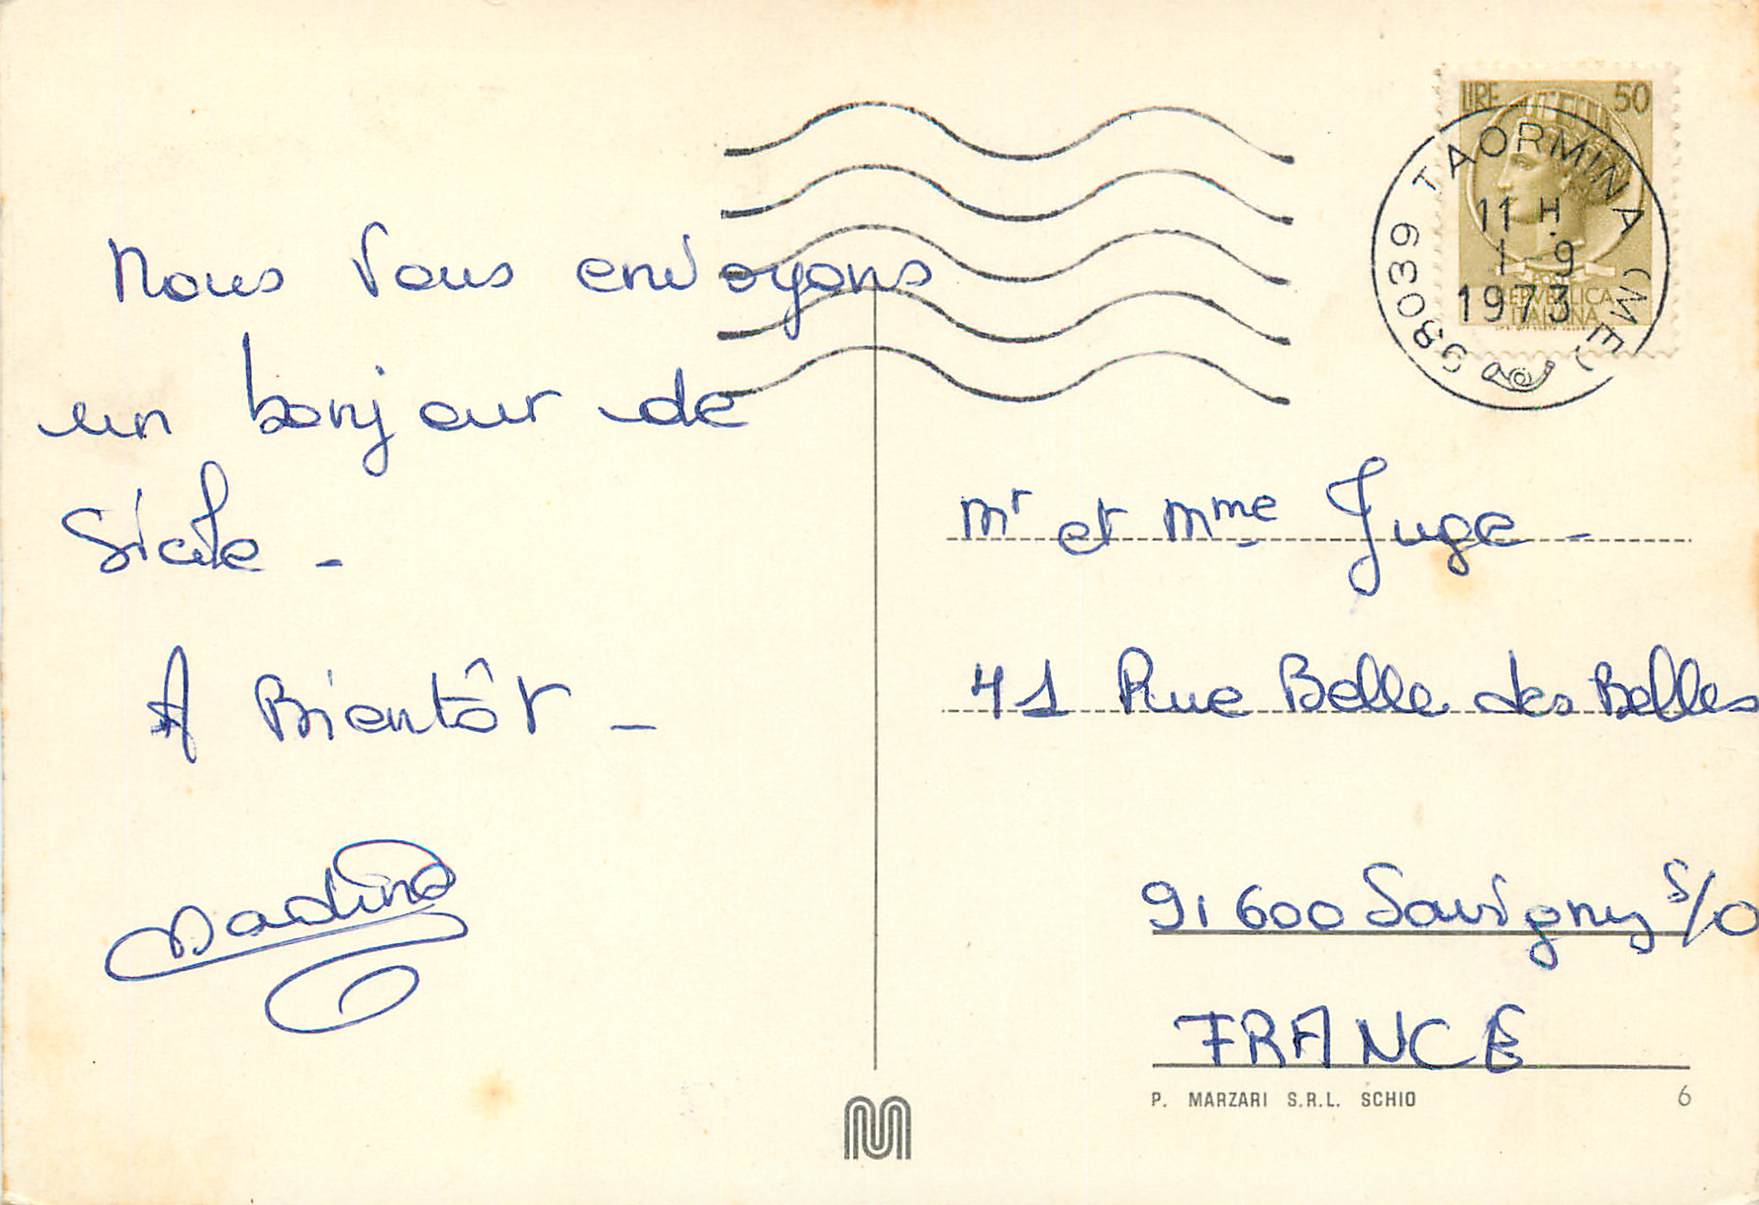 Nous Vous envoyons
un bonjour de
Sicile -
A Bientôt -
Nadine
LIRE 50
REPVBBLICA
ITALIANA
98039 TAORMINA (ME)
11 H.
1-9
1973
Mr et Mme Juge -
41 Rue Belle des Belles
91600 Savigny S/O
FRANCE
P. MARZARI S.R.L. SCHIO 6